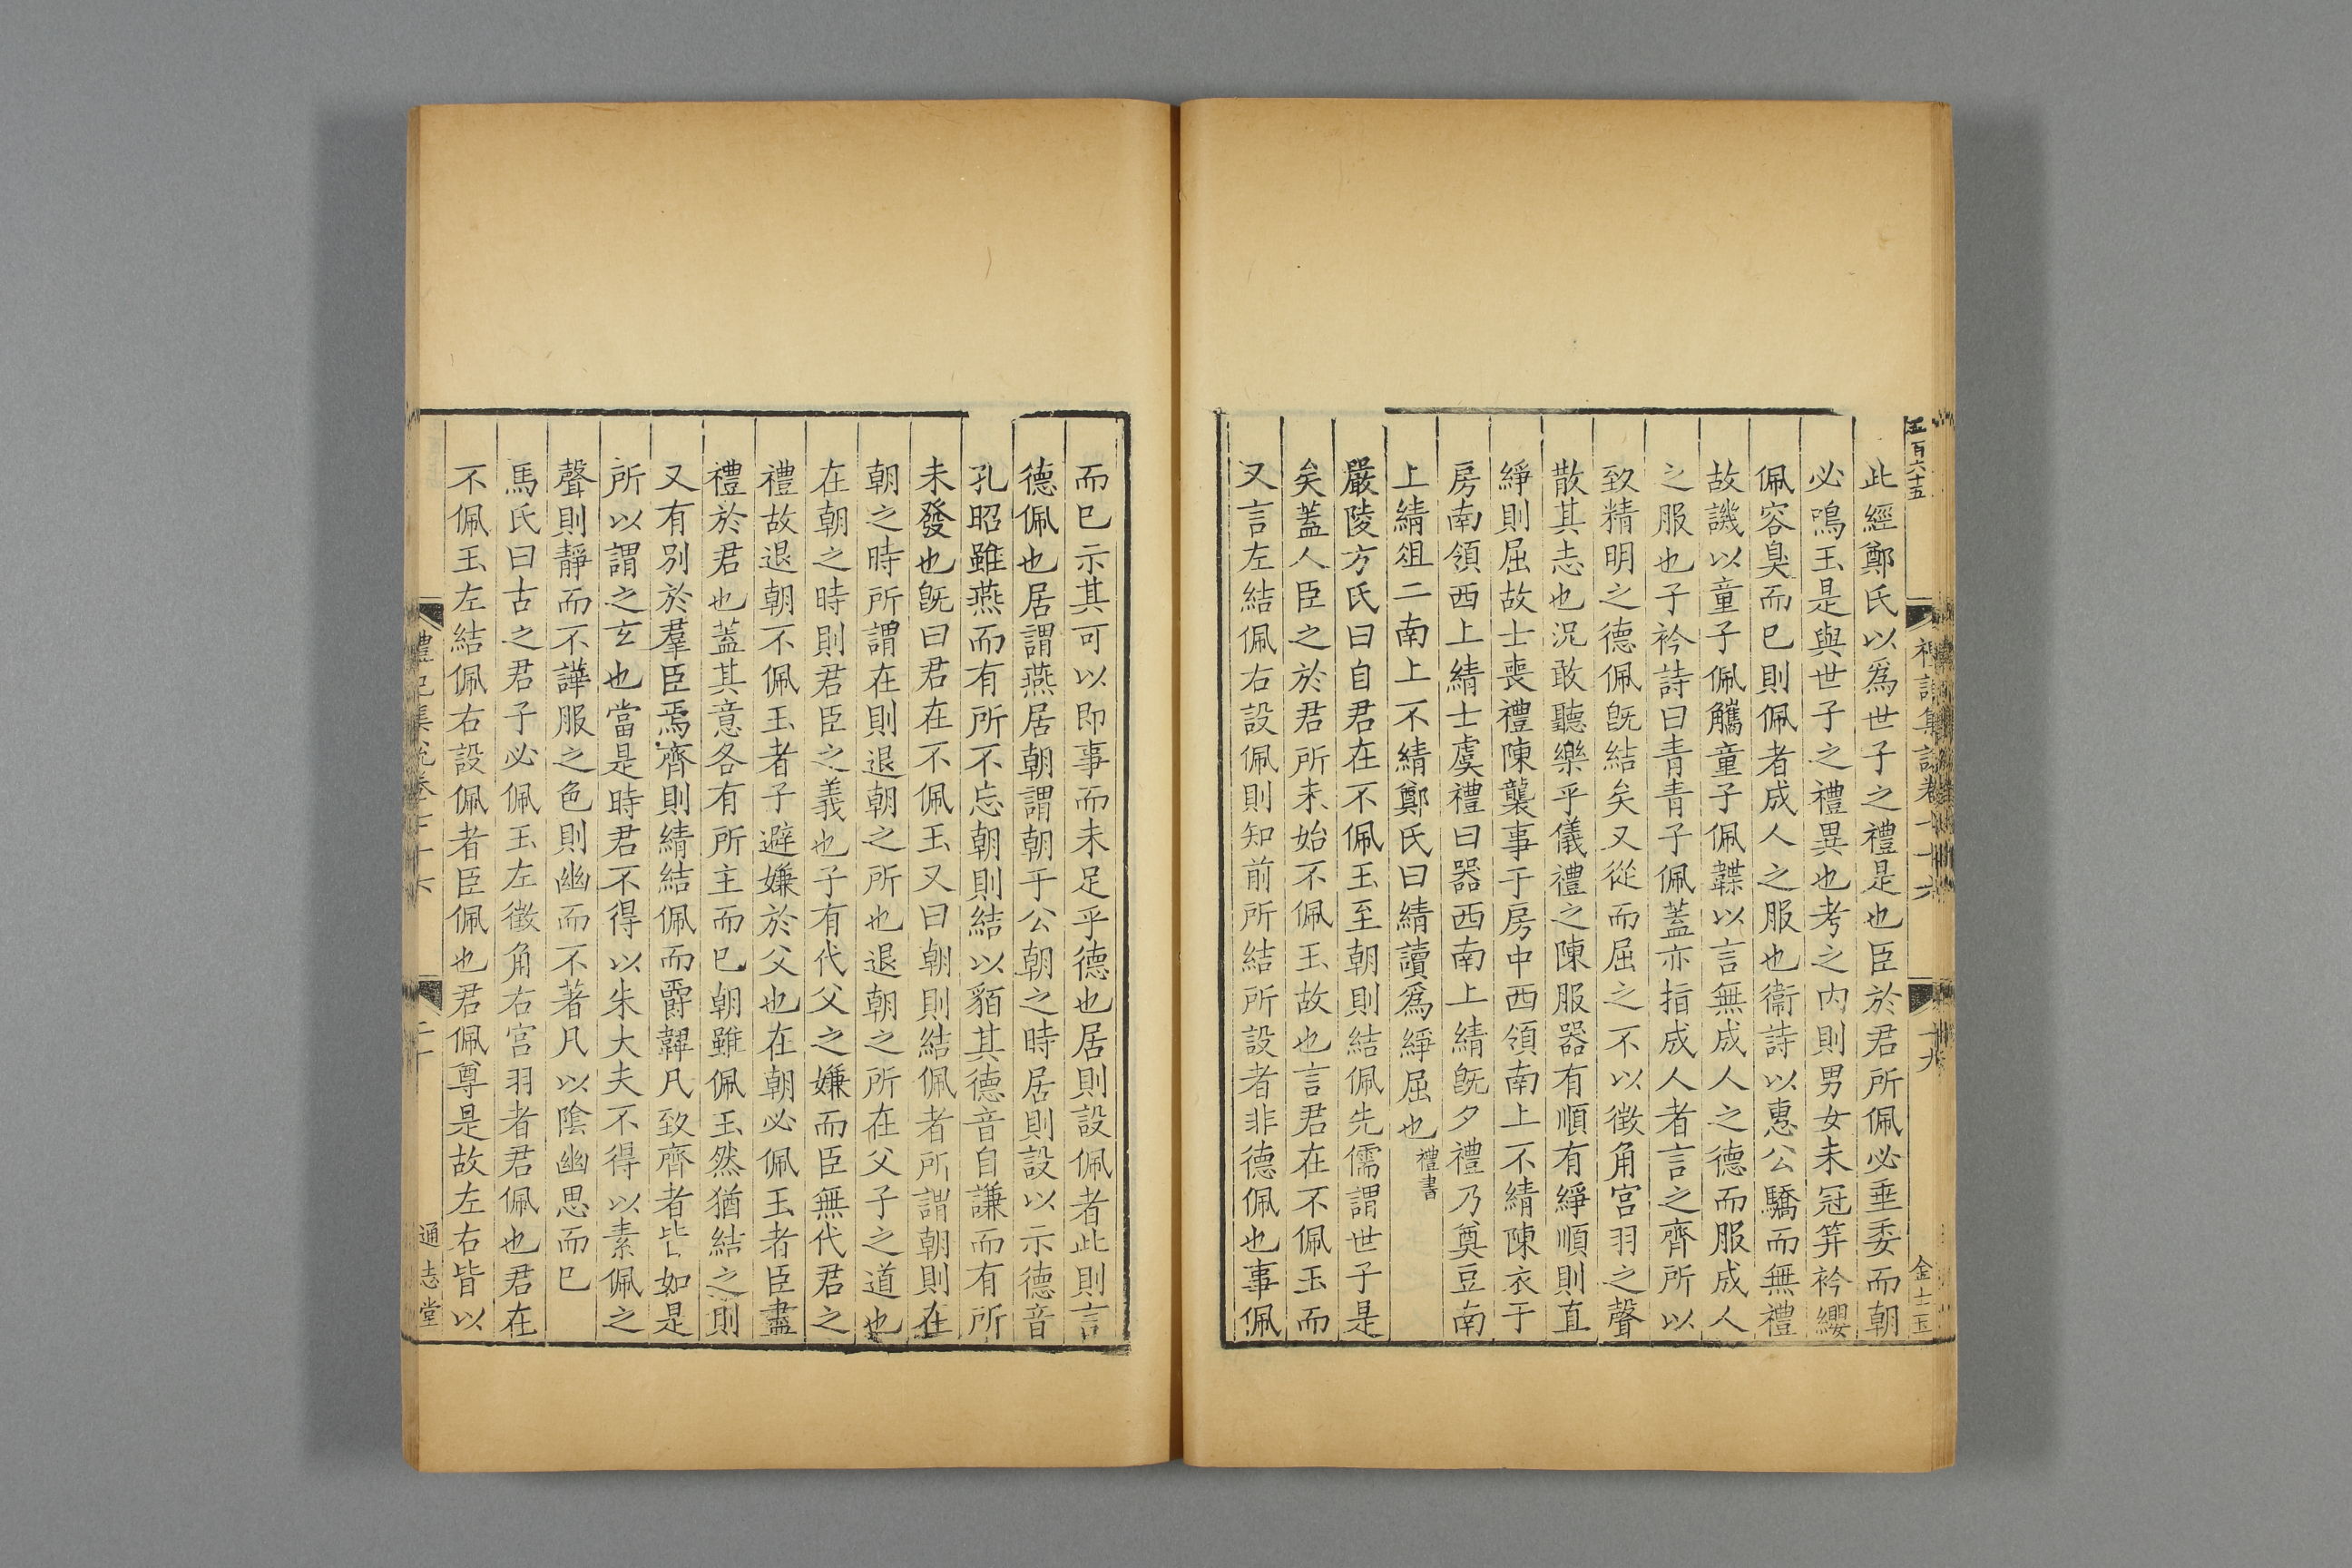 五百六十五
此經鄭氏以爲世子之禮是也臣於君所佩必垂委而朝
必鳴玉是與世子之禮異也考之内則男女未冠笄衿纓
佩容臭而巳則佩者成人之服也衞詩以惠公驕而無禮
故譏以童子佩觿童子佩韘以言無成人之德而服成人
之服也子衿詩曰青青子佩蓋亦指成人者言之齊所以
致精明之德佩旣結矣又從而屈之不以徵角宫羽之聲
散其志也況敢聽樂乎儀禮之陳服器有順有綪順則直
綪則屈故士喪禮陳襲事于房中西領南上不綪陳衣于
房南領西上綪士虞禮曰器西南上綪旣夕禮乃奠豆南
上綪俎二南上不綪鄭氏曰綪讀爲絳屈也禮書
嚴陵方氏曰自君在不佩玉至朝則結佩先儒謂世子是
矣蓋人臣之於君所未始不佩玉故也言君在不佩玉而
又言左結佩右設佩則知前所結所設者非德佩也事佩
金士玉
而巳示其可以即事而未足乎德也居則設佩者此則言
德佩也居謂燕居朝謂朝于公朝之時居則設以示德音
孔昭雖燕而有所不忘朝則結以貊其德音自謙而有所
未發也旣曰君在不佩玉又曰朝則結佩者所謂朝則在
朝之時所謂在則退朝之所也退朝之所在父子之道也
在朝之時則君臣之義也子有代父之嫌而臣無代君之
禮故退朝不佩玉者子避嫌於父也在朝必佩玉者臣盡
禮於君也蓋其意各有所主而巳朝雖佩玉然猶結之則
又有別於羣臣焉齊則綪結佩而爵韠凡致齊者皆如是
所以謂之玄也當是時君不得以朱大夫不得以素佩之
聲則靜而不譁服之色則幽而不著凡以陰幽思而巳
馬氏曰古之君子必佩玉左徵角右宫羽者君佩也君在
不佩玉左結佩右設佩者臣佩也君佩尊是故左右皆以
通志堂